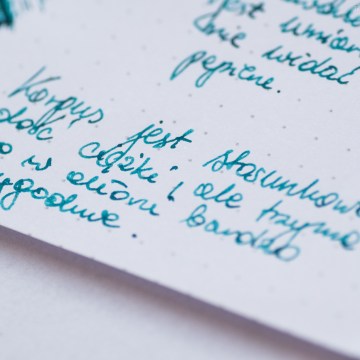 jest umia
nie widać
papierze.
Korpus jest stosunkowo
dość ciężki, ale trzyma
w dłoni bardzo
wygodnie.